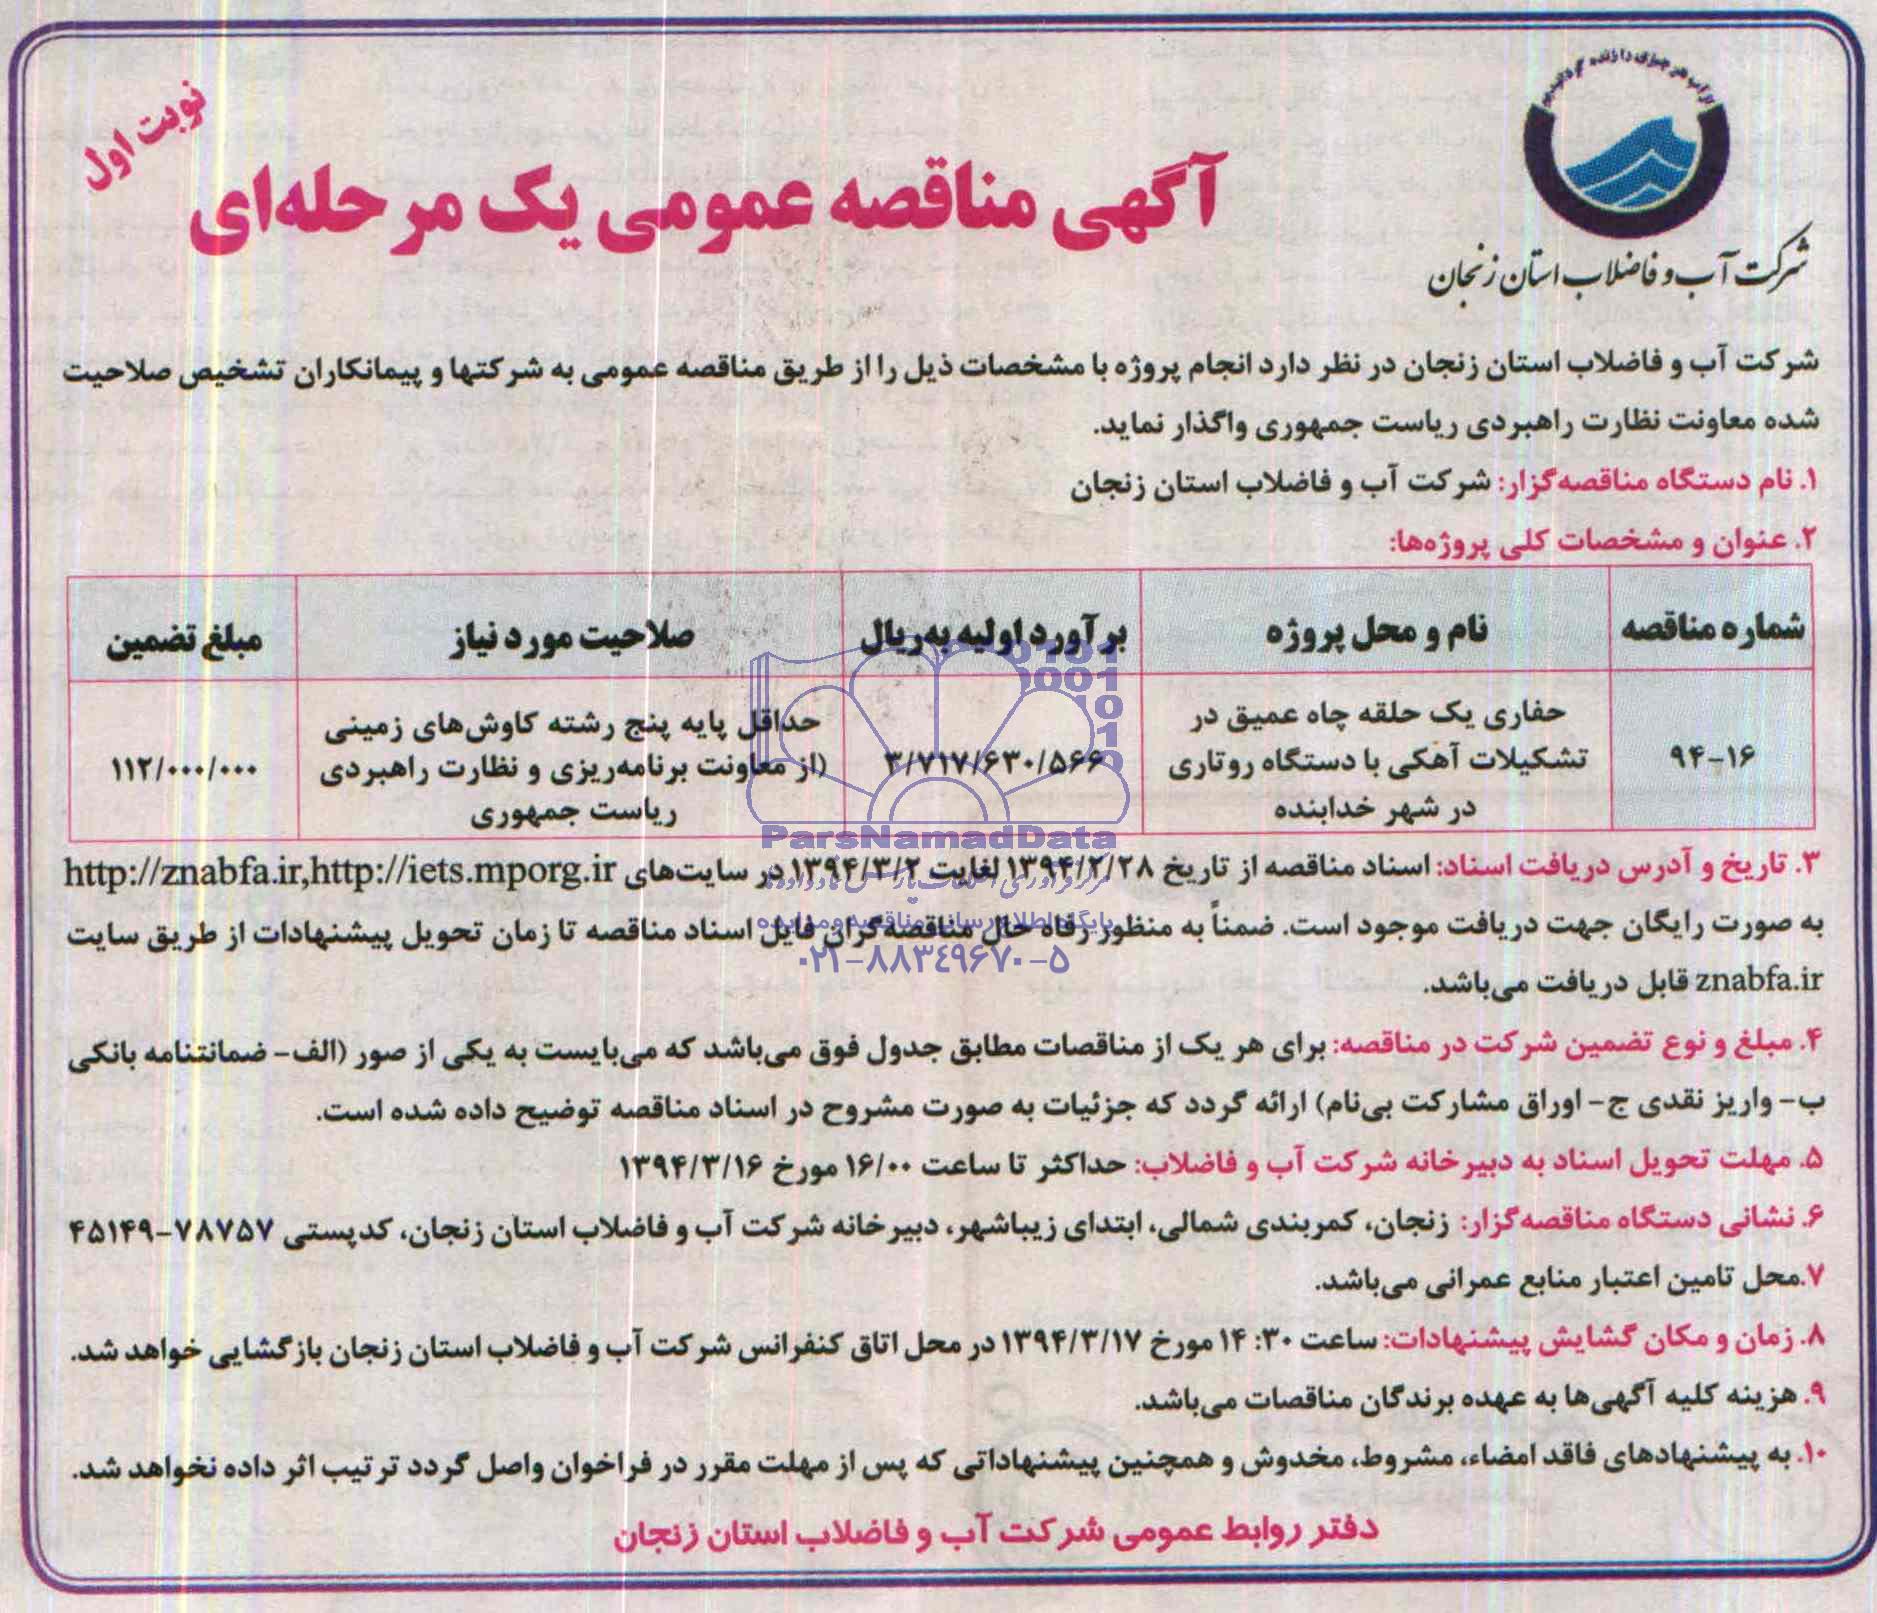 از آب هر چیزی را زنده گردانیدیم
شرکت آب و فاضلاب استان زنجان
نوبت اول
آگهی مناقصه عمومی یک مرحله‌ای
شرکت آب و فاضلاب استان زنجان در نظر دارد انجام پروژه با مشخصات ذیل را از طریق مناقصه عمومی به شرکتها و پیمانکاران تشخیص صلاحیت
شده معاونت نظارت راهبردی ریاست جمهوری واگذار نماید.
۱. نام دستگاه مناقصه‌گزار: شرکت آب و فاضلاب استان زنجان
۲. عنوان و مشخصات کلی پروژه‌ها:
شماره مناقصه نام و محل پروژه برآورد اولیه به ریال صلاحیت مورد نیاز مبلغ تضمین
حفاری یک حلقه چاه عمیق در
تشکیلات آهکی با دستگاه روتاری
در شهر خدابنده
حداقل پایه پنج رشته کاوش‌های زمینی
(از معاونت برنامه‌ریزی و نظارت راهبردی
ریاست جمهوری
۹۴-۱۶
۳/۷۱۷/۶۳۰/۵۶۶
۱۱۲/۰۰۰/۰۰۰
ParsNamadData
۳. تاریخ و آدرس دریافت اسناد: اسناد مناقصه از تاریخ ۱۳۹۴/۲/۲۸ لغایت ۱۳۹۴/۳/۲ در سایت‌های http://znabfa.ir,http://iets.mporg.ir
به صورت رایگان جهت دریافت موجود است. ضمناً به منظور رفاه حال مناقصه‌گران فایل اسناد مناقصه تا زمان تحویل پیشنهادات از طریق سایت
پایگاه اطلاع رسانی مناقصه و مزایده
۰۲۱-۸۸۳۴۹۶۷۰-۵
znabfa.ir قابل دریافت می‌باشد.
۴. مبلغ و نوع تضمین شرکت در مناقصه: برای هر یک از مناقصات مطابق جدول فوق می‌باشد که می‌بایست به یکی از صور (الف- ضمانتنامه بانکی
ب- واریز نقدی ج- اوراق مشارکت بی‌نام) ارائه گردد که جزئیات به صورت مشروح در اسناد مناقصه توضیح داده شده است.
۵. مهلت تحویل اسناد به دبیرخانه شرکت آب و فاضلاب: حداکثر تا ساعت ۱۶/۰۰ مورخ ۱۳۹۴/۳/۱۶
۶. نشانی دستگاه مناقصه‌گزار: زنجان، کمربندی شمالی، ابتدای زیباشهر، دبیرخانه شرکت آب و فاضلاب استان زنجان، کدپستی ۷۸۷۵۷-۴۵۱۴۹
۷.محل تامین اعتبار منابع عمرانی می‌باشد.
۸. زمان و مکان گشایش پیشنهادات: ساعت ۱۴:۳۰ مورخ ۱۳۹۴/۳/۱۷ در محل اتاق کنفرانس شرکت آب و فاضلاب استان زنجان بازگشایی خواهد شد.
۹. هزینه کلیه آگهی‌ها به عهده برندگان مناقصات می‌باشد.
۱۰. به پیشنهادهای فاقد امضاء، مشروط، مخدوش و همچنین پیشنهاداتی که پس از مهلت مقرر در فراخوان واصل گردد ترتیب اثر داده نخواهد شد.
دفتر روابط عمومی شرکت آب و فاضلاب استان زنجان